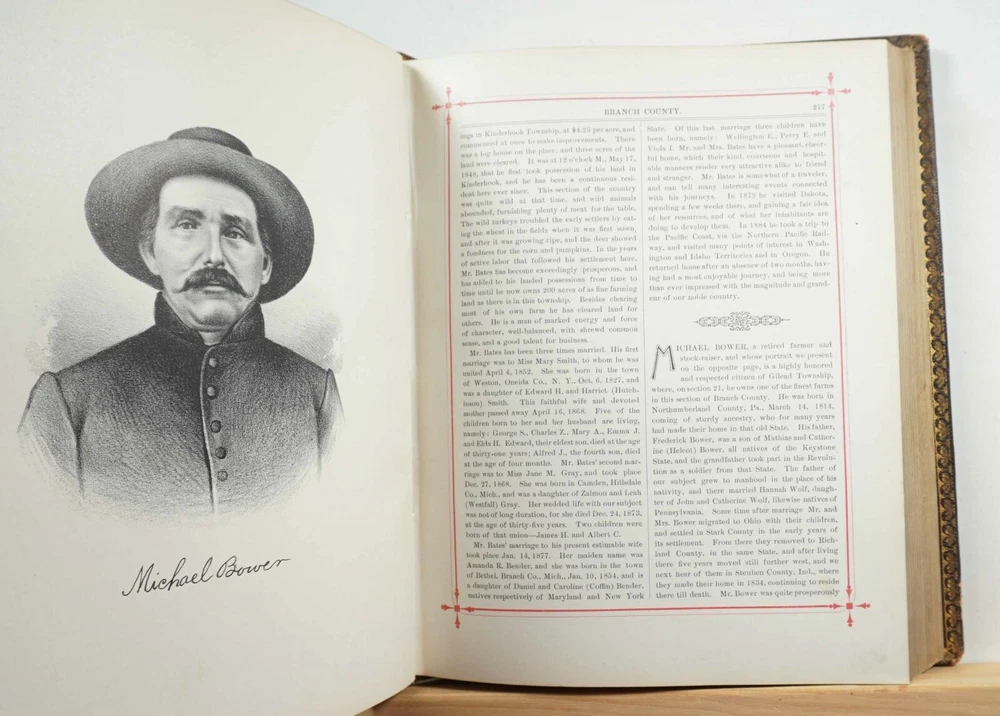 Michael Bower
BRANCH COUNTY.
217
ings in Kinderhook Township, at $4.25 per acre, and
commenced at once to make improvements. There
was a log house on the place, and three acres of the
land were cleared. It was at 12 o'clock M., May 17,
1848, that he first took possession of his land in
Kinderhook, and he has been a continuous resi-
dent here ever since. This section of the country
was quite wild at that time, and wild animals
abounded, furnishing plenty of meat for the table.
The wild turkeys troubled the early settlers by eat-
ing the wheat in the fields when it was first sown,
and after it was growing ripe, and the deer showed
a fondness for the corn and pumpkins. In the years
of active labor that followed his settlement here,
Mr. Bates has become exceedingly prosperous, and
has added to his landed possessions from time to
time until he now owns 290 acres of as fine farming
land as there is in this township. Besides clearing
most of his own farm he has cleared land for
others. He is a man of marked energy and force
of character, well-balanced, with shrewd common
sense, and a good talent for business.
Mr. Bates has been three times married. His first
marriage was to Miss Mary Smith, to whom he was
united April 4, 1852. She was born in the town
of Weston, Oneida Co., N. Y., Oct. 6, 1827, and
was a daughter of Edward H. and Harriet (Hutch-
inson) Smith. This faithful wife and devoted
mother passed away April 16, 1868. Five of the
children born to her and her husband are living,
namely: George S., Charles Z., Mary A., Emma J.
and Elda H. Edward, their eldest son, died at the age
of thirty-one years; Alfred J., the fourth son, died
at the age of four months. Mr. Bates' second mar-
riage was to Miss Jane M. Gray, and took place
Dec. 27, 1868. She was born in Camden, Hillsdale
Co., Mich., and was a daughter of Zalmon and Leah
(Westfall) Gray. Her wedded life with our subject
was not of long duration, for she died Dec. 24, 1873,
at the age of thirty-five years. Two children were
born of that union—James H. and Albert C.
Mr. Bates' marriage to his present estimable wife
took place Jan. 14, 1877. Her maiden name was
Amanda R. Bender, and she was born in the town
of Bethel, Branch Co., Mich., Jan. 10, 1854, and is
a daughter of Daniel and Caroline (Coffin) Bender,
natives respectively of Maryland and New York
State. Of this last marriage three children have
been born, namely: Wellington E., Perry E. and
Viola I. Mr. and Mrs. Bates have a pleasant, cheer-
ful home, which their kind, courteous and hospit-
able manners render very attractive alike to friend
and stranger. Mr. Bates is somewhat of a traveler,
and can tell many interesting events connected
with his journeys. In 1873 he visited Dakota,
spending a few weeks there, and gaining a fair idea
of her resources, and of what her inhabitants are
doing to develop them. In 1884 he took a trip to
the Pacific Coast, via the Northern Pacific Rail-
way, and visited many points of interest in Wash-
ington and Idaho Territories and in Oregon. He
returned home after an absence of two months, hav-
ing had a most enjoyable journey, and being more
than ever impressed with the magnitude and grand-
eur of our noble country.
MICHAEL BOWER, a retired farmer and
stock-raiser, and whose portrait we present
on the opposite page, is a highly honored
and respected citizen of Gilead Township,
where, on section 21, he owns one of the finest farms
in this section of Branch County. He was born in
Northumberland County, Pa., March 14, 1814,
coming of sturdy ancestry, who for many years
had made their home in that old State. His father,
Frederick Bower, was a son of Mathias and Cather-
ine (Helcot) Bower, all natives of the Keystone
State, and the grandfather took part in the Revolu-
tion as a soldier from that State. The father of
our subject grew to manhood in the place of his
nativity, and there married Hannah Wolf, daugh-
ter of John and Catherine Wolf, likewise natives of
Pennsylvania. Some time after marriage Mr. and
Mrs. Bower migrated to Ohio with their children,
and settled in Stark County in the early years of
its settlement. From there they removed to Rich-
land County, in the same State, and after living
there five years moved still further west, and we
next hear of them in Steuben County, Ind., where
they made their home in 1834, continuing to reside
there till death. Mr. Bower was quite prosperously